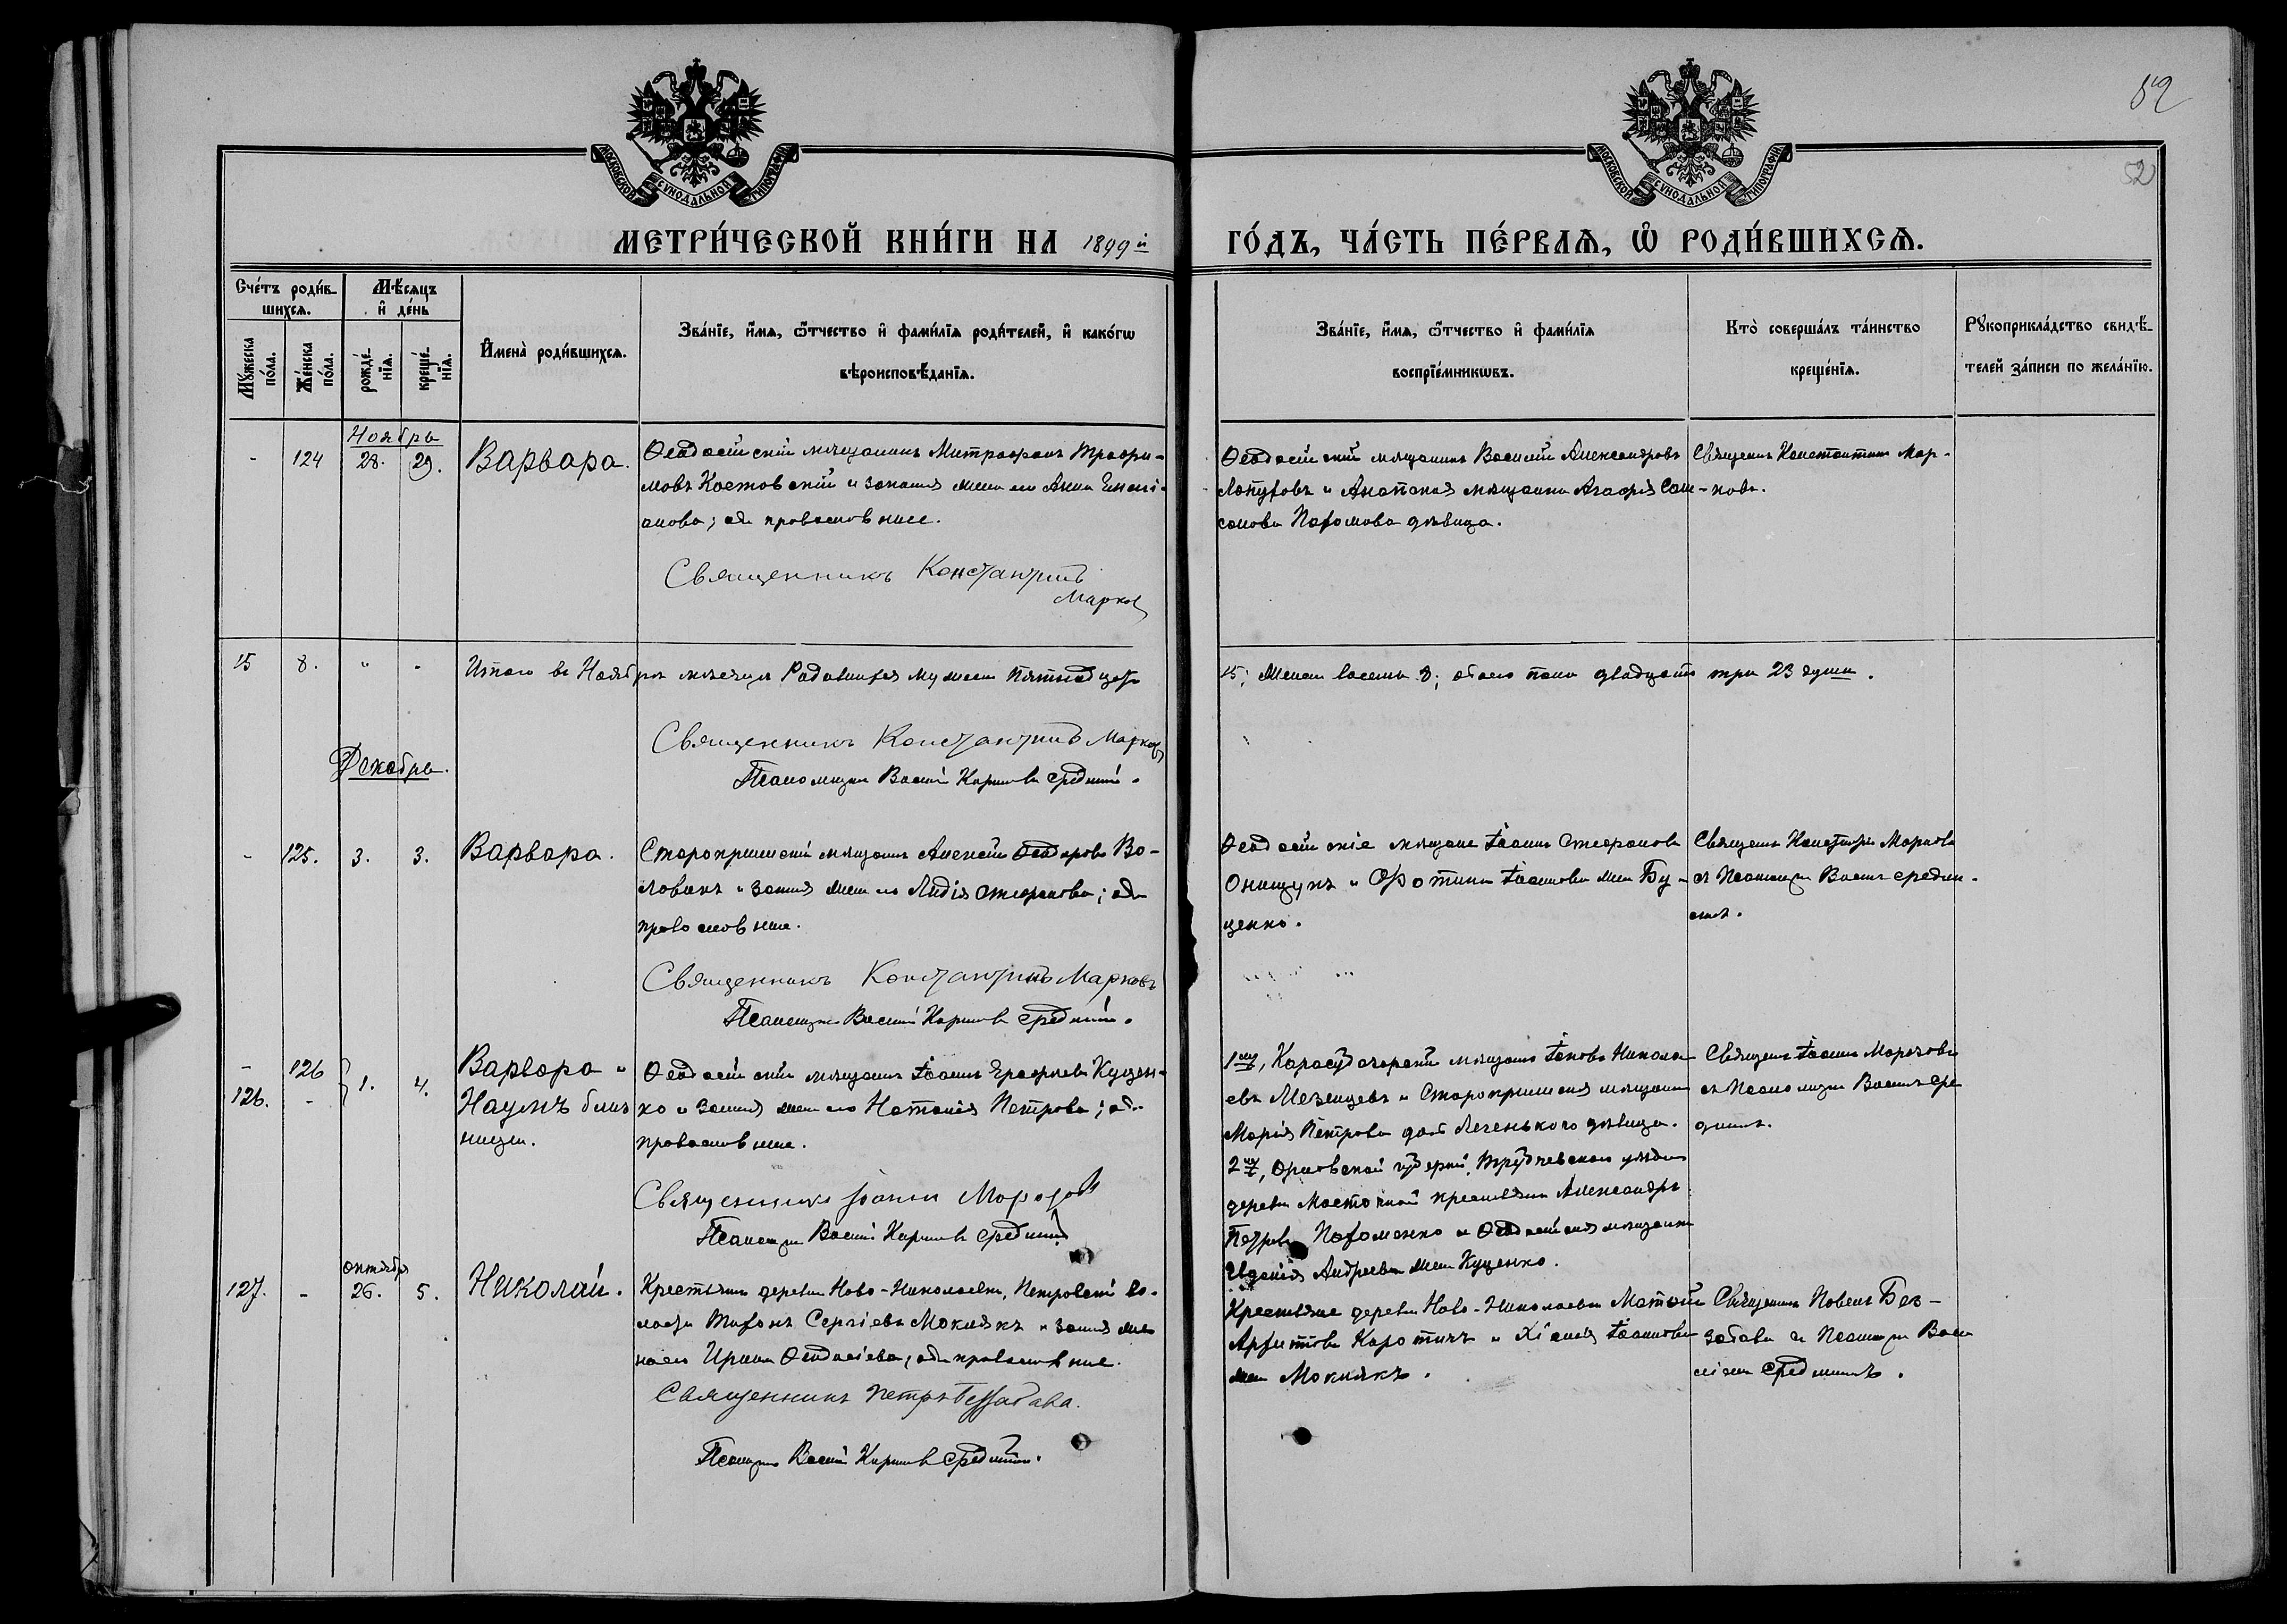 52
52
МОСКОВСКОЙ СѴНОДАЛЬНОЙ ТИПОГРАФІИ
МОСКОВСКОЙ СѴНОДАЛЬНОЙ ТИПОГРАФІИ
МЕТРИ́ЧЕСКОЙ КНИ́ГИ НА 1899 й
ГО́ДЪ, ЧА́СТЬ ПЕ́РВАѦ, Ѽ РОДИ́ВШИХСѦ.
Сче́тъ роди́в-
шихсѧ.
Мѣ́сѧцъ
и҆ де́нь
Мꙋ́жеска по́ла.
Же́нска по́ла.
рожде́-нїѧ.
креще́-нїѧ.
И҆мена̀ роди́вшихсѧ.
Зва́нїе, и҆́мѧ, ѻ҆́тчество и҆ фами́лїѧ роди́телей, и҆ како́гѡ
вѣроисповѣ́данїѧ.
Зва́нїе, и҆́мѧ, ѻ҆́тчество и҆ фами́лїѧ
воспрїе́мникѡвъ.
Кто̀ соверша́лъ та́инство
креще́нїѧ.
Рꙋкоприкла́дство свидѣ́-
телей за́писи по жела́нїю.
Ноябрь
- 124 28. 29. Варвара.
Ѳеодосійскій мѣщанинъ Митрофанъ Трофи-
мовъ Костовскій и законная жена его Анна
анова; оба православные.
Священникъ Константинъ
Марковъ
Ѳеодосійскій мѣщанинъ Василій Александровъ
Лопуховъ и Анапская мѣщанка Агафія Сам-
сонова Пахомова дѣвица.
Священ. Константинъ Мар-
ковъ.
15 8. " - Итого въ Ноябрѣ мѣсяцѣ Родившихся мужеска пятнадцать
15; Женска восемь 8; обоего пола двадцать три 23 души.
Священникъ Константинъ Марковъ
Псаломщикъ Василій Средній.
Декабрь.
- 125. 3. 3. Варвара.
Старокрымскій мѣщанинъ Алексѣй Ѳеодоровъ Во-
ловикъ и законная жена его Лидія Стефанова; оба
православные.
Священникъ Константинъ Марковъ
Псаломщикъ Василій Средній.
Ѳеодосійскіе мѣщане Іоаннъ Стефановъ
Онищукъ и Фотина Іоаннова жена Бу-
ценко.
Священ. Константинъ Марковъ
съ Псаломщ. Василіемъ Средн-
имъ.
- 126
126. - } 1. 4. Варвара и
Наумъ близ
нецы.
Ѳеодосійскій мѣщанинъ Іоаннъ Куцен-
ко и законная жена его Наталія Петрова; оба
православные.
Священникъ Іоаннъ Морозовъ
Псаломщикъ Василій Средній
1ой, Карасубазарскій мѣщанинъ Іаковъ Никола-
евъ Мезенцевъ и Старокрымская мѣщанка
Марія Петрова дочь Легенького дѣвица.
2го, Орловской губерніи, Трубчевскаго уѣзда
деревни крестьянинъ Александръ
Петровъ Пахоменко и Ѳеодосійская мѣщанка
Евдокія Андреева жена Куценко.
Священ. Іоаннъ Морозовъ
съ Псаломщ. Василіемъ Сре
днимъ.
октября
127. - 26. 5. Николай.
Крестьянинъ деревни Ново-Николаевки, Петровской во-
лости Тихонъ Сергіевъ Моклякъ и законная же
на его Ирина Ѳеодосіева; оба православные.
Священникъ Петръ Беззабава.
Псаломщикъ Василій Средній.
Крестьяне деревни Ново-Николаевки Матѳей
Архиповъ Коротичъ и Хіонія Іоаннова
жена Моклякъ.
Священникъ Без-
забава съ Псаломщ. Васи
ліемъ Среднимъ.